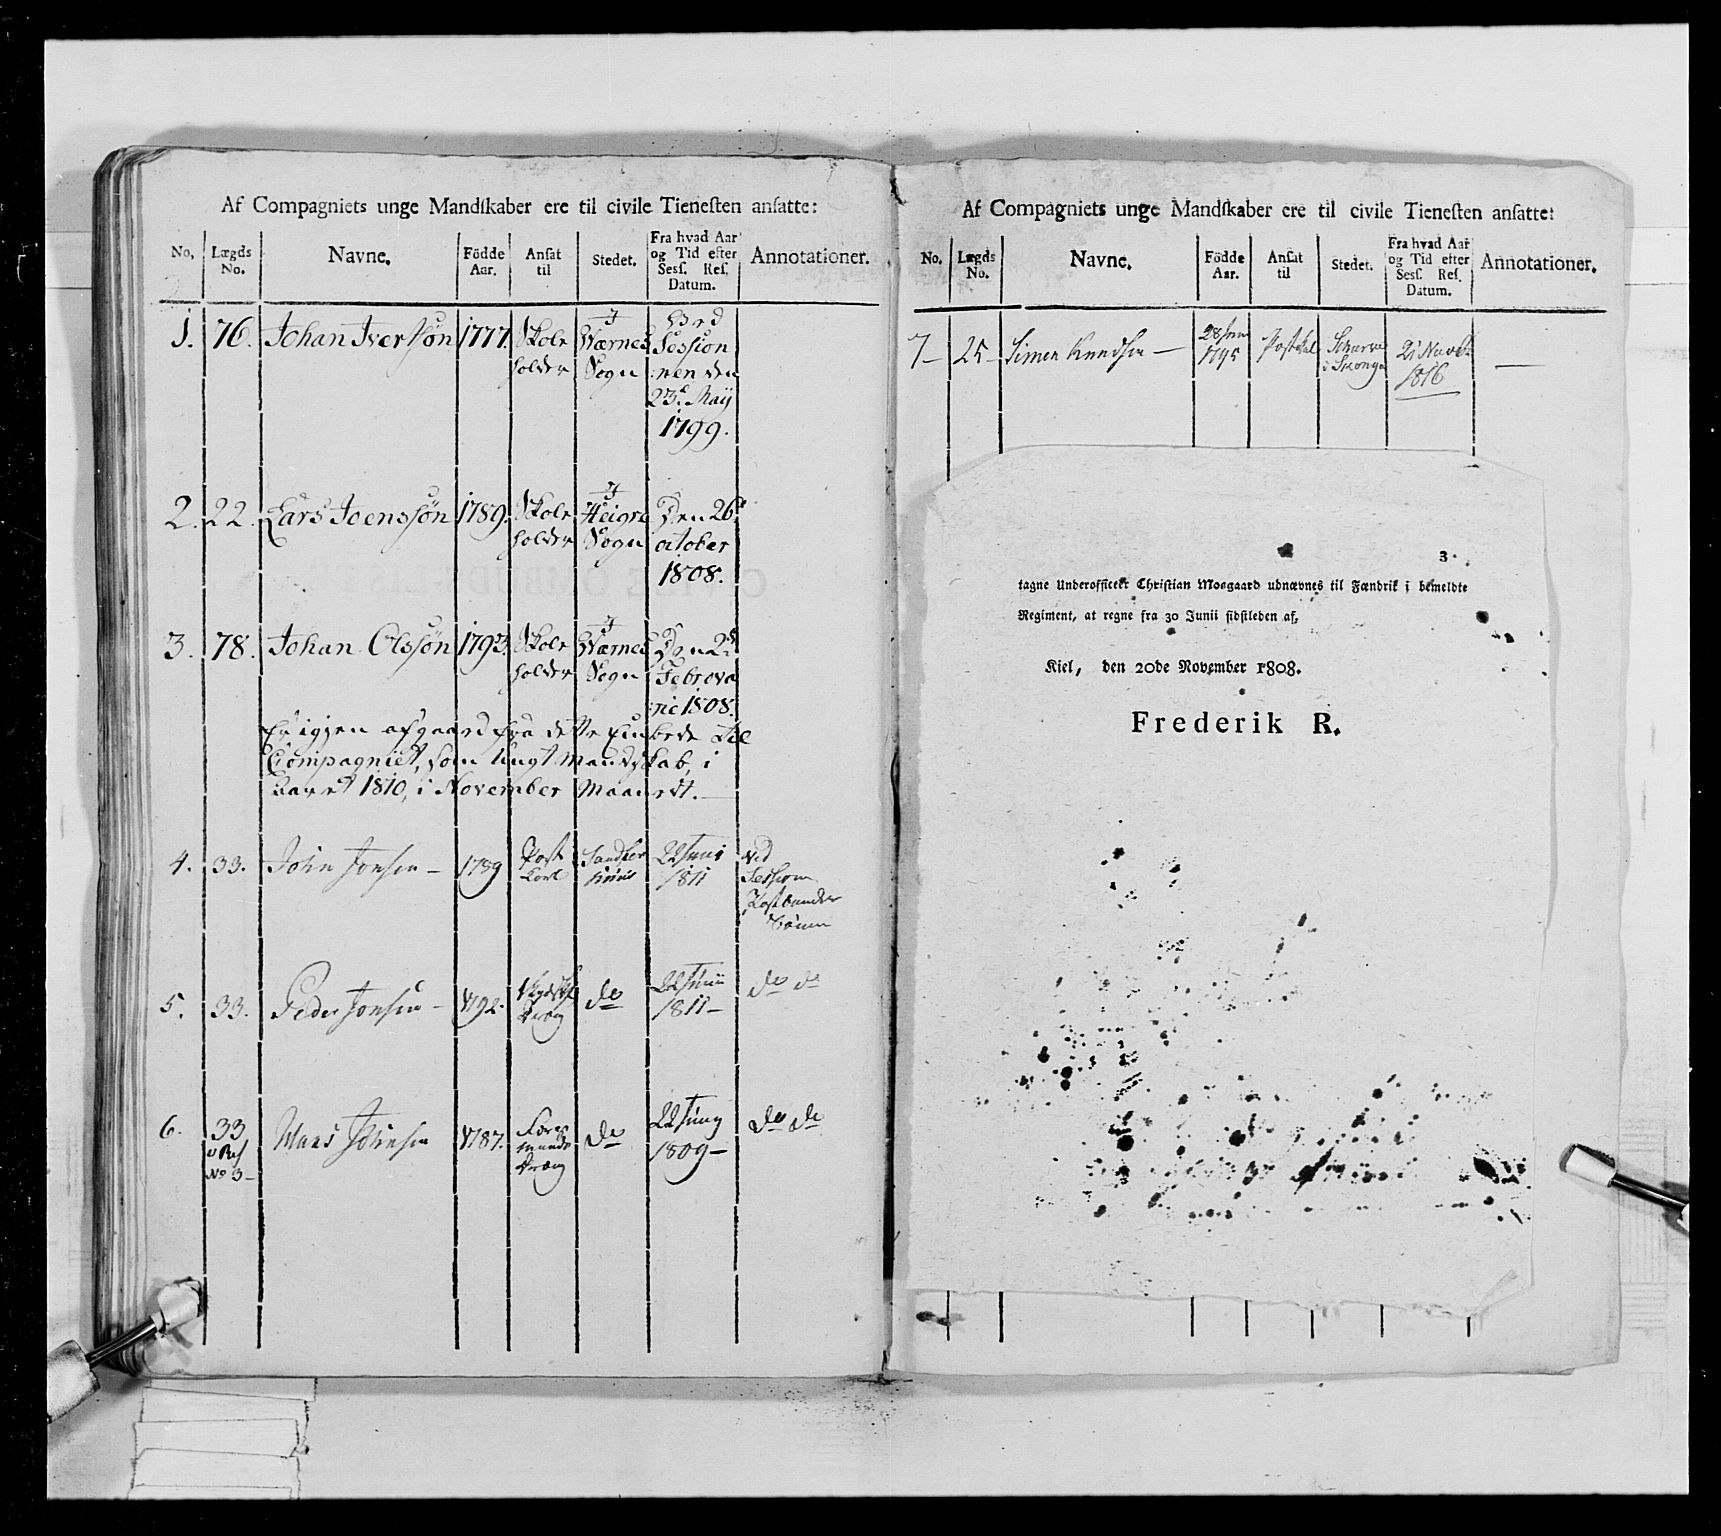 Af Compagniets unge Mandskaber ere til civile Tienesten ansatte:
No. Lægds No. Navne. Födde Aar. Ansat til Stedet. Fra hvad Aar og Tid efter Sess. Res. Datum. Annotationer.
1. 76. Johan Iversøn 1777. Skole holder I Værnes Sogn Ved Session nen den 23d Maÿ 1799.
2. 22. Lars Joenssøn 1789. Skole holder I Heigre Sogn Den 26d october 1808.
3. 78. Johan Olssøn 1793. Skole holder I Værnes Sogn Den 2d Febrova rie 1808.
Er igjen afgaaed fra dette Embede til
Compagniet, som ungt Mandskab, i
Aaret 1810, i November Maanedt.
4. 33. John Jonsen 1789 Post Karl 22 Juni 1811 ved Session
5. 33. Peder Jonsen 1792. do 22 Junii 1811 do do
6. 33 No 3 Jonsen 1787. do 22 Juny 1809 do do
Af Compagniets unge Mandskaber ere til civile Tienesten ansatte:
No. Lægds No. Navne. Födde Aar. Ansat til Stedet. Fra hvad Aar og Tid efter Sess. Res. Datum. Annotationer.
7 25 Simen Knudsen 1795 21 Novbr 1816
3.
tagne Underofficeer Christian Moagaard udnævnes til Fændrik i bemeldte
Regiment, at regne fra 30 Junii sidstleden af,
Kiel, den 20de November 1808.
Frederik R.